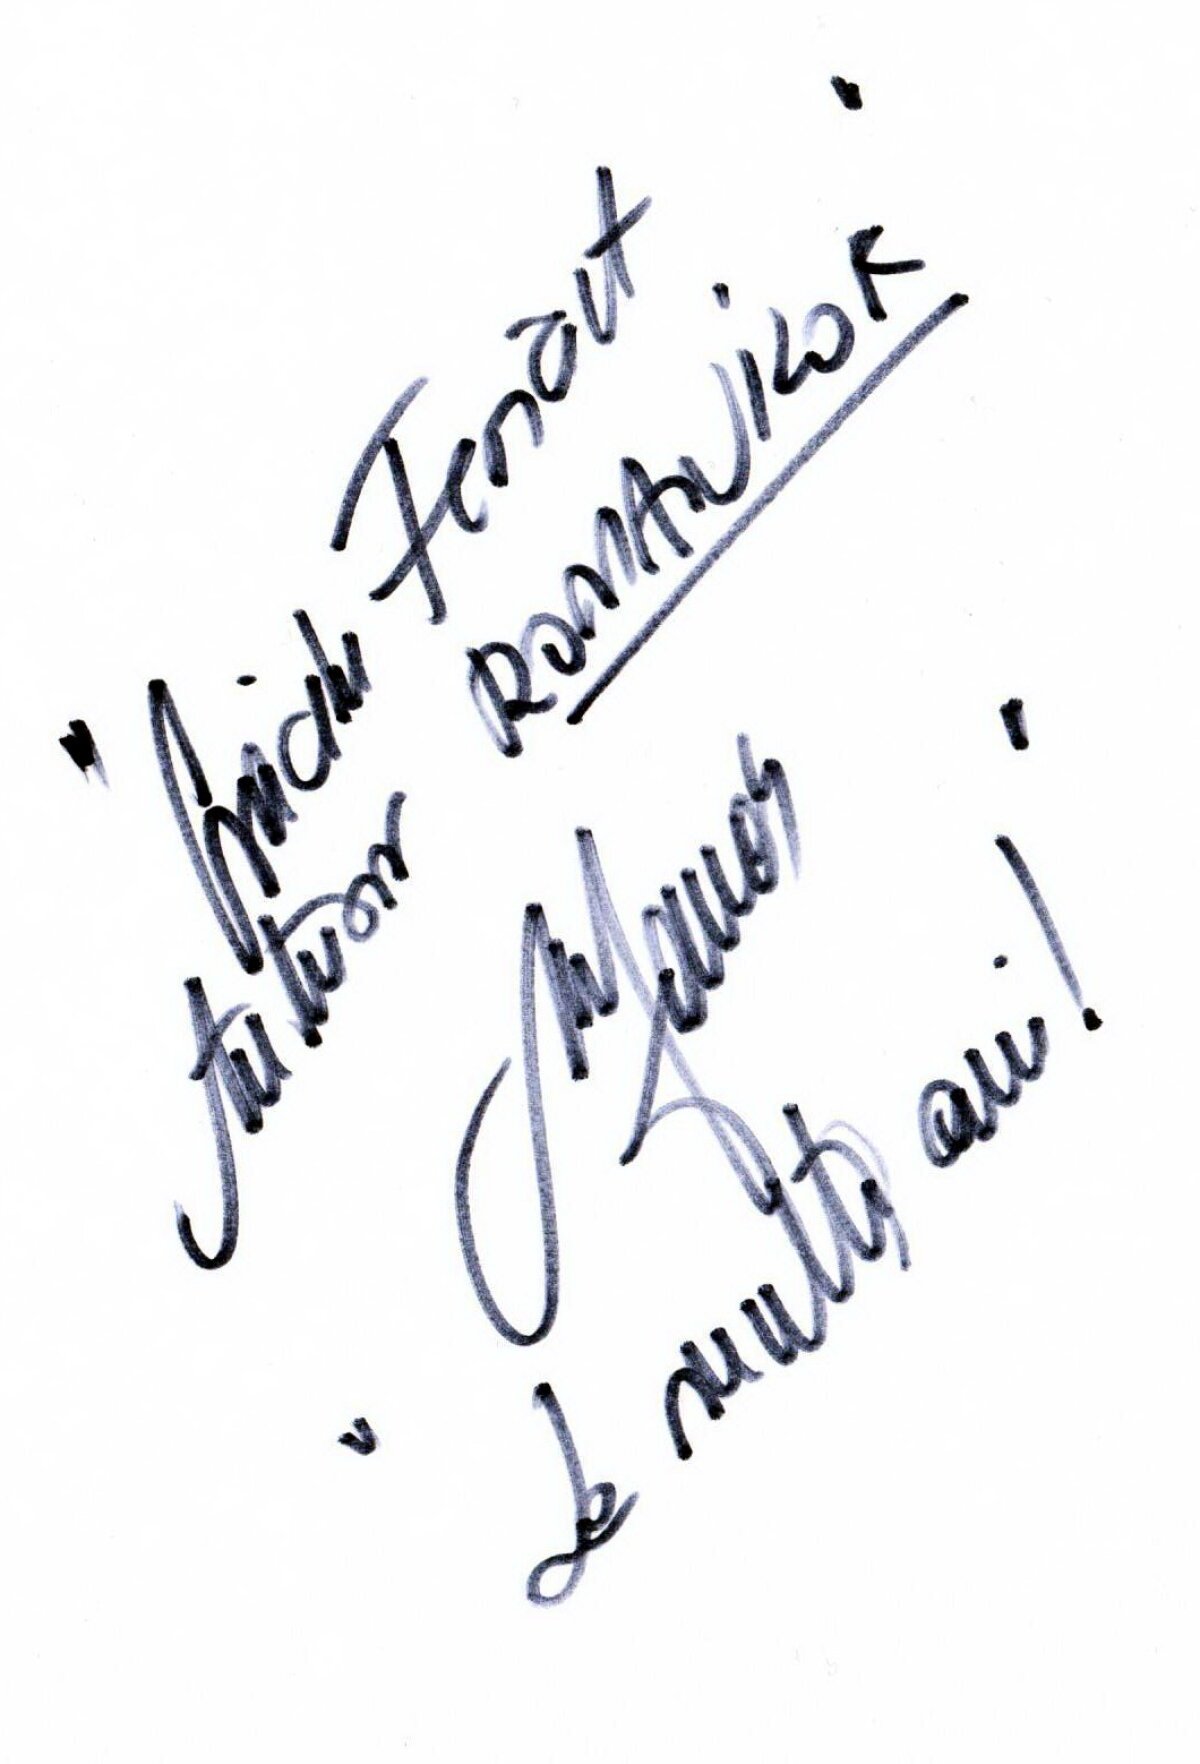 "Crăciun Fericit
tuturor ROMANILOR"
"La mulți ani!"